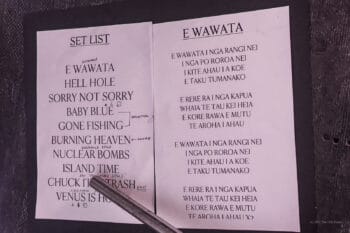 SET LIST
E WAWATA
HELL HOLE
SORRY NOT SORRY
BABY BLUE
GONE FISHING
BURNING HEAVEN
NUCLEAR BOMBS
ISLAND TIME
CHUCK TRASH
VENUS IS
E WAWATA
E WAWATA I NGA RANGI NEI
I NGA PO ROROA NEI
I KITE AHAU I A KOE
E TAKU TUMANAKO
E RERE RA I NGA KAPUA
WHAIA TE TAU KEI HEIA
E KORE RAWA E MUTU
TE AROHA I AHAU
E WAWATA I NGA RANGI NEI
I NGA PO ROROA NEI
I KITE AHAU I A KOE
E TAKU TUMANAKO
E RERE RA I NGA KAPUA
WHAIA TE TAU KEI HEIA
E KORE RAWA E MUTU
TE AROHA I AHAU X2